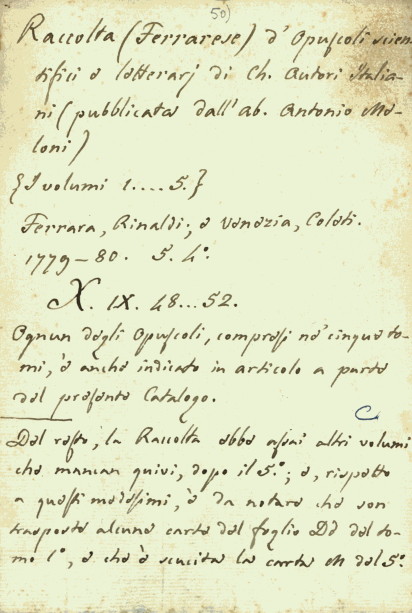 50)
Raccolta (Ferrarese) d'Opuscoli scien
tifici e letterarj di Ch. Autori Italia-
ni (pubblicata dall'ab. Antonio Me-
loni)
{I volumi 1....5.}
Ferrara, Rinaldi; e Venezia, Coleti.
1779-80. 5. 4°.
X. IX. 48...52.
Ognun degli Opuscoli, compresi ne' cinque to-
mi, è anche indicato in articolo a parte
del presente Catalogo.
Del resto, la Raccolta ebbe assai altri volumi
che mancan quivi, dopo il 5.°; e, rispetto
a questi medesimi, è da notare che son
trasposte alcune carte del foglio Dd del to-
mo 1°, e che è scucita la carta M del 5.°